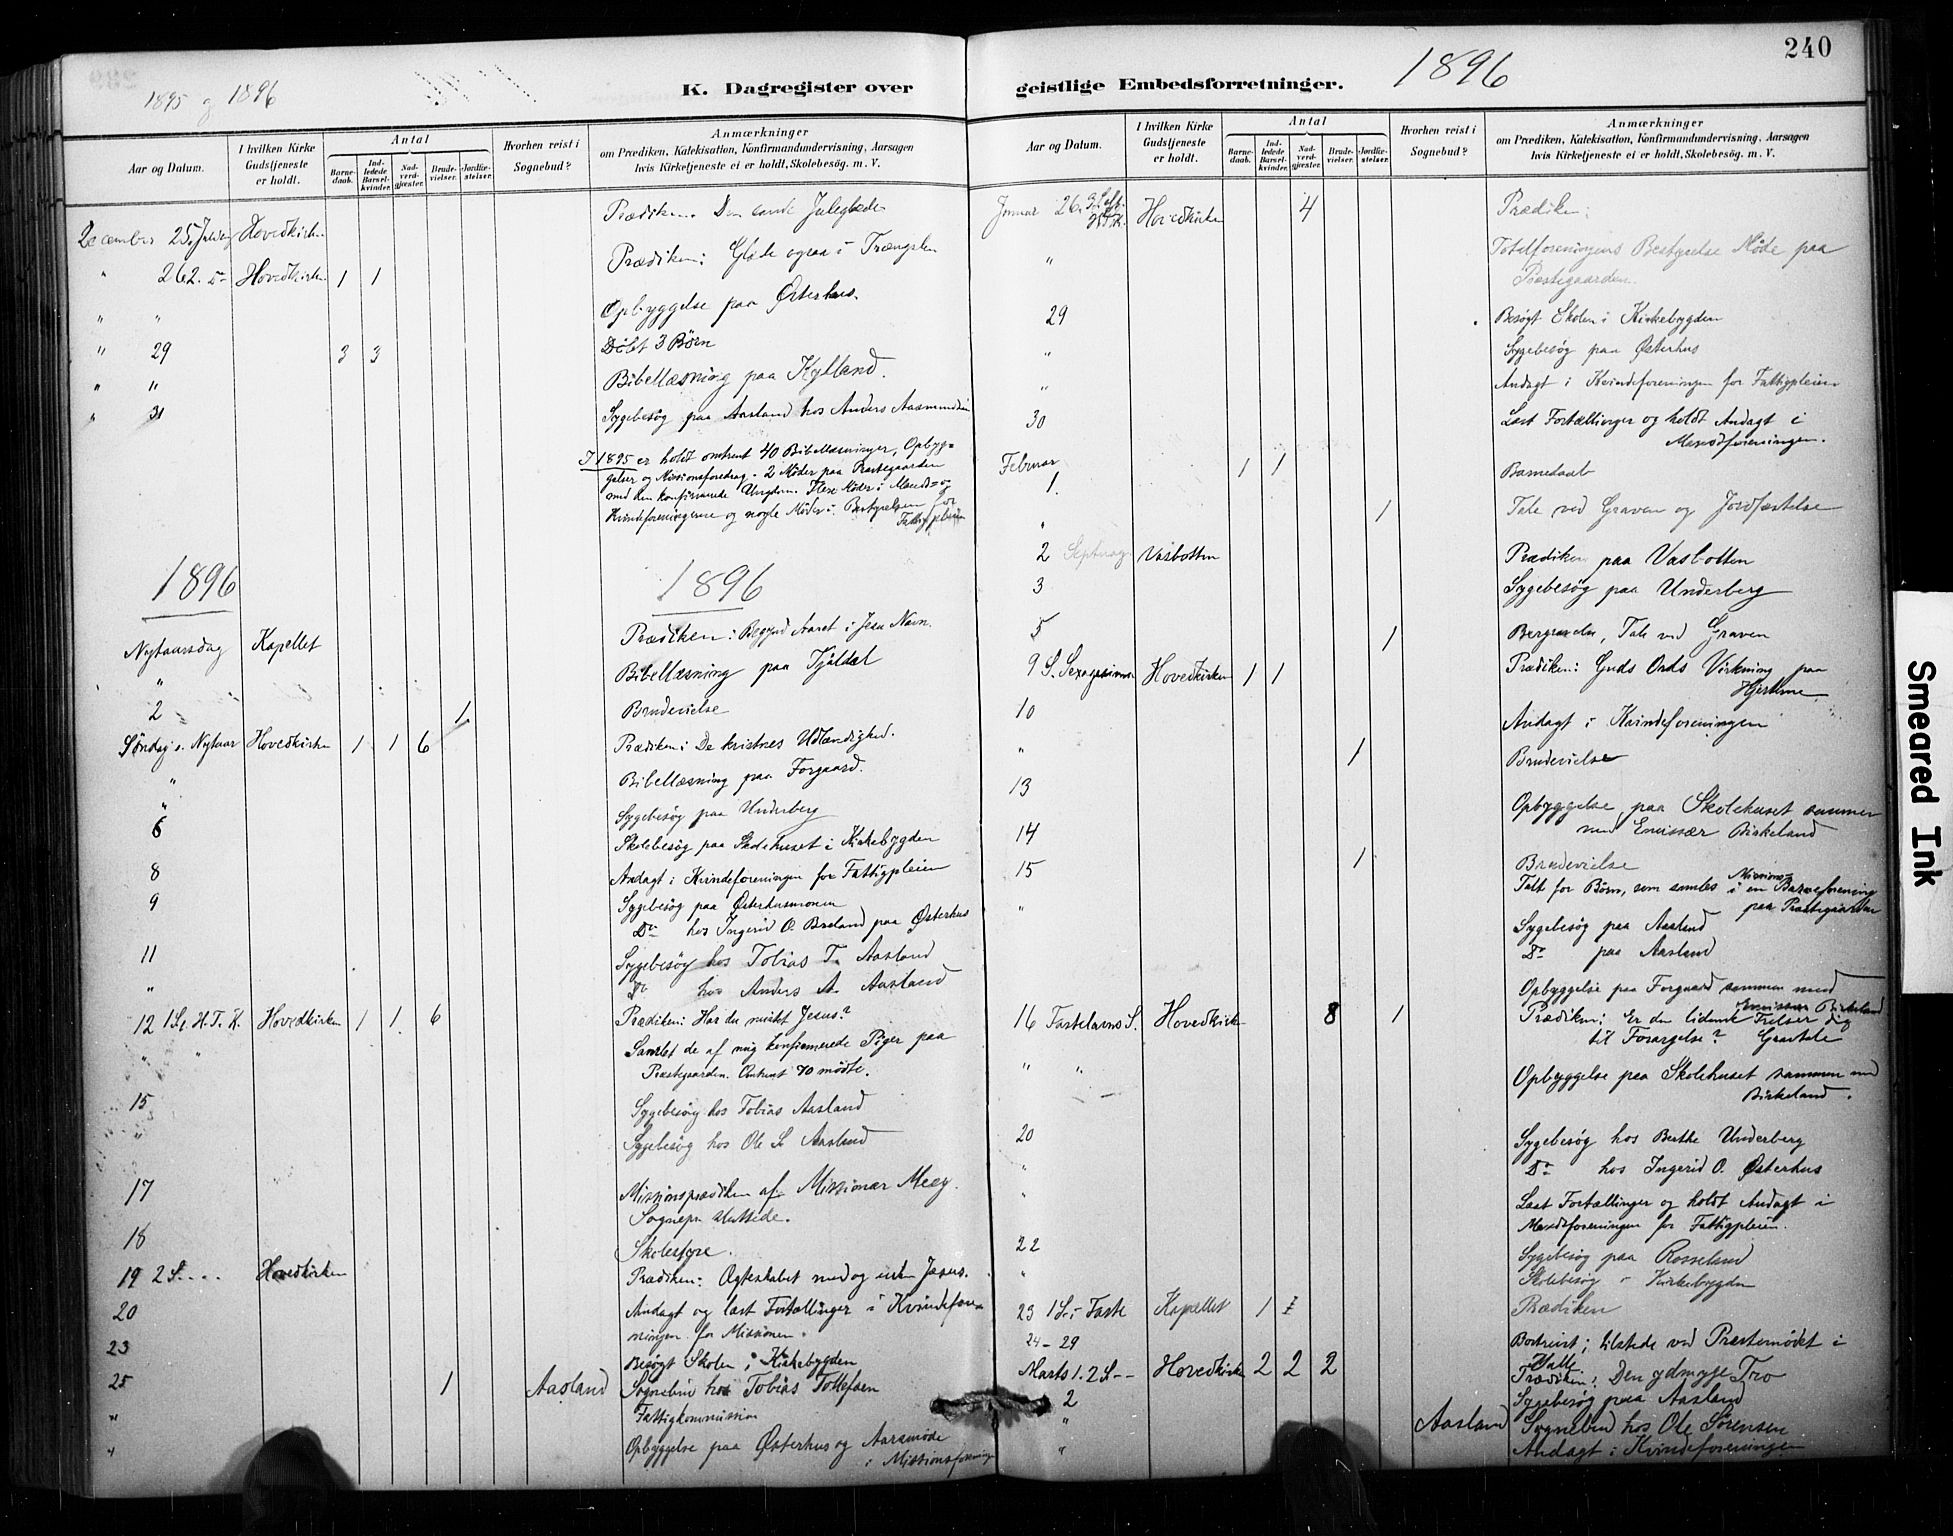 1895 og 1896
K. Dagregister over
Aar og Datum.
I hvilken Kirke Gudstjeneste er holdt.
Antal
Barne-daab.
Ind-ledede Barsel-kvinder.
Nad-verd-gjæster.
Brude-vielser.
Jordfæ-stelser.
Hvorhen reist i Sognebud?
Anmærkninger
om Prædiken, Katekisation, Konfirmandundervisning, Aarsagen
hvis Kirketjeneste ei er holdt, Skolebesøg. m. V.
December 25. Juledag Hovedkirken Prædiken. Den sande Juleglæde
" 26 2. D. Hovedkirken 1 1 Prædiken: Glæde ogsaa i Trængslen
" " Opbyggelse paa Østerhus.
" 29 3 3 Døbt 3 Børn
" " Bibellæsning paa Kylland.
" 31 Sygebesøg paa Aasland hos Anders Aasmundsen
I 1895 er holdt omtrent 40 Bibellæsninger, Opbyg=
gelser og Missionsforedrag. 2 Møder paa Præstegaarden
med den konfirmerede Ungdom. Flere Møder i Mands= og
Kvindeforeningerne og nogle Møder i Bestyrelsen for
Fattigpleien
1896 1896
Nytaarsdag Kapellet Prædiken: Begynd Aaret i Jesu Navn.
" Bibellæsning paa Tjaldal
2 1 Brudevielse
Søndag e. Nytaar Hovedkirken 1 1 6 Prædiken: De kristnes Udlændighed.
" Bibellæsning paa Forgaard.
" Sygebesøg paa Underberg
6 Skolebesøg paa Skolehuset i Kirkebygden
8 Andagt i Kvindeforeningen for Fattigpleien
9 Sygebesøg paa Østerhusmonen
Do hos Ingerid O. Breland paa Østerhus
11 Sygebesøg hos Tobias T. Aasland
" Do hos Anders A. Aasland
12 1 S. e. H. T. K. Hovedkirken 1 1 6 Prædiken: Har du mistet Jesus?
" " Samlet de af mig konfirmerede Piger paa
Præstegaarden. Omtrent 70 mødte.
15 Sygebesøg hos Tobias Aasland
" Sygebesøg hos Ole S. Aasland
17 Missionsprædiken af Missionær Meeg.
Sognepr. sluttede.
18 Skolestyre.
19 2 S. . . . . Hovedkirken Prædiken: Ægteskabet med og uden Jesus.
20 Andagt og læst Fortællinger i Kvindefore=
ningen for Missionen.
23 Besøgt Skolen i Kirkebygden
25 1 Aasland Sognebud hos Tobias Tollefsen
" Fattigkommission
" Opbyggelse paa Østerhus og Aarsmøde
i Missionsforeningen
240
geistlige Embedsforretninger. 1896
Aar og Datum.
I hvilken Kirke Gudstjeneste er holdt.
Antal
Barne-daab.
Ind-ledede Barsel-kvinder.
Nad-verd-gjæster.
Brude-vielser.
Jordfæ-stelser.
Hvorhen reist i Sognebud?
Anmærkninger
om Prædiken, Katekisation, Konfirmandundervisning, Aarsagen
hvis Kirketjeneste ei er holdt, Skolebesøg. m. V.
Januar 26. Hovedkirken 4 Prædiken:
" Totalforeningens Bestyrelse Møde paa
Præstegaarden.
29 Besøgt Skolen i Kirkebygden
" Sygebesøg paa Østerhus
" Andagt i Kvindeforeningen for Fattigpleien
30 Læst Fortællinger og holdt Andagt i
Mandsforeningen.
Februar
1. 1 1 Barnedaab
" 1 Tale ved Graven og Jordfæstelse
2 Septuag. Vasbotten Prædiken paa Vasbotten
3 Sygebesøg paa Underberg
5 1 Begravelse, Tale ved Graven
9 S. Sexagesima Hovedkirken 1 1 Prædiken: Guds Ords Virkning paa
Hjerterne
10 Andagt i Kvindeforeningen
" 1 Brudevielse
13 Opbyggelse paa Skolehuset sammen
med Emissær Birkeland
14 1 Brudevielse
15 Talt for Børn, som samles i en Missions Barneforening
paa Præstegaarden
" Sygebesøg paa Aasland
Do paa Aasland
Opbyggelse paa Forgaard sammen med
Emissær Birkeland
16 Fastelavns S. Hovedkirken 8 1 Prædiken: Er den lidende Frelser dig
til Forargelse? Gravtale
" " Opbyggelse paa Skolehuset sammen med
Birkeland.
20 Sygebesøg hos Berthe Underberg
" Do hos Ingerid O. Østerhus
" Læst Fortællinger og holdt Andagt i
Mandsforeningen for Fattigpleien.
22 Sygebesøg paa Rosseland
" Skolebesøg i Kirkebygden
23 1 S. i Faste Kapellet 1 1 Prædiken
24 - 29 Bortreist; tilstede ved Præstemødet i
Valle
Marts 1. 2 S - - Hovedkirken 2 2 2 Prædiken: Den ydmyge Tro
2 Sygebesøg paa Aasland
" Aasland Sognebud hos Ole Sørensen
" Andagt i Kvindeforeningen
Smeared Ink